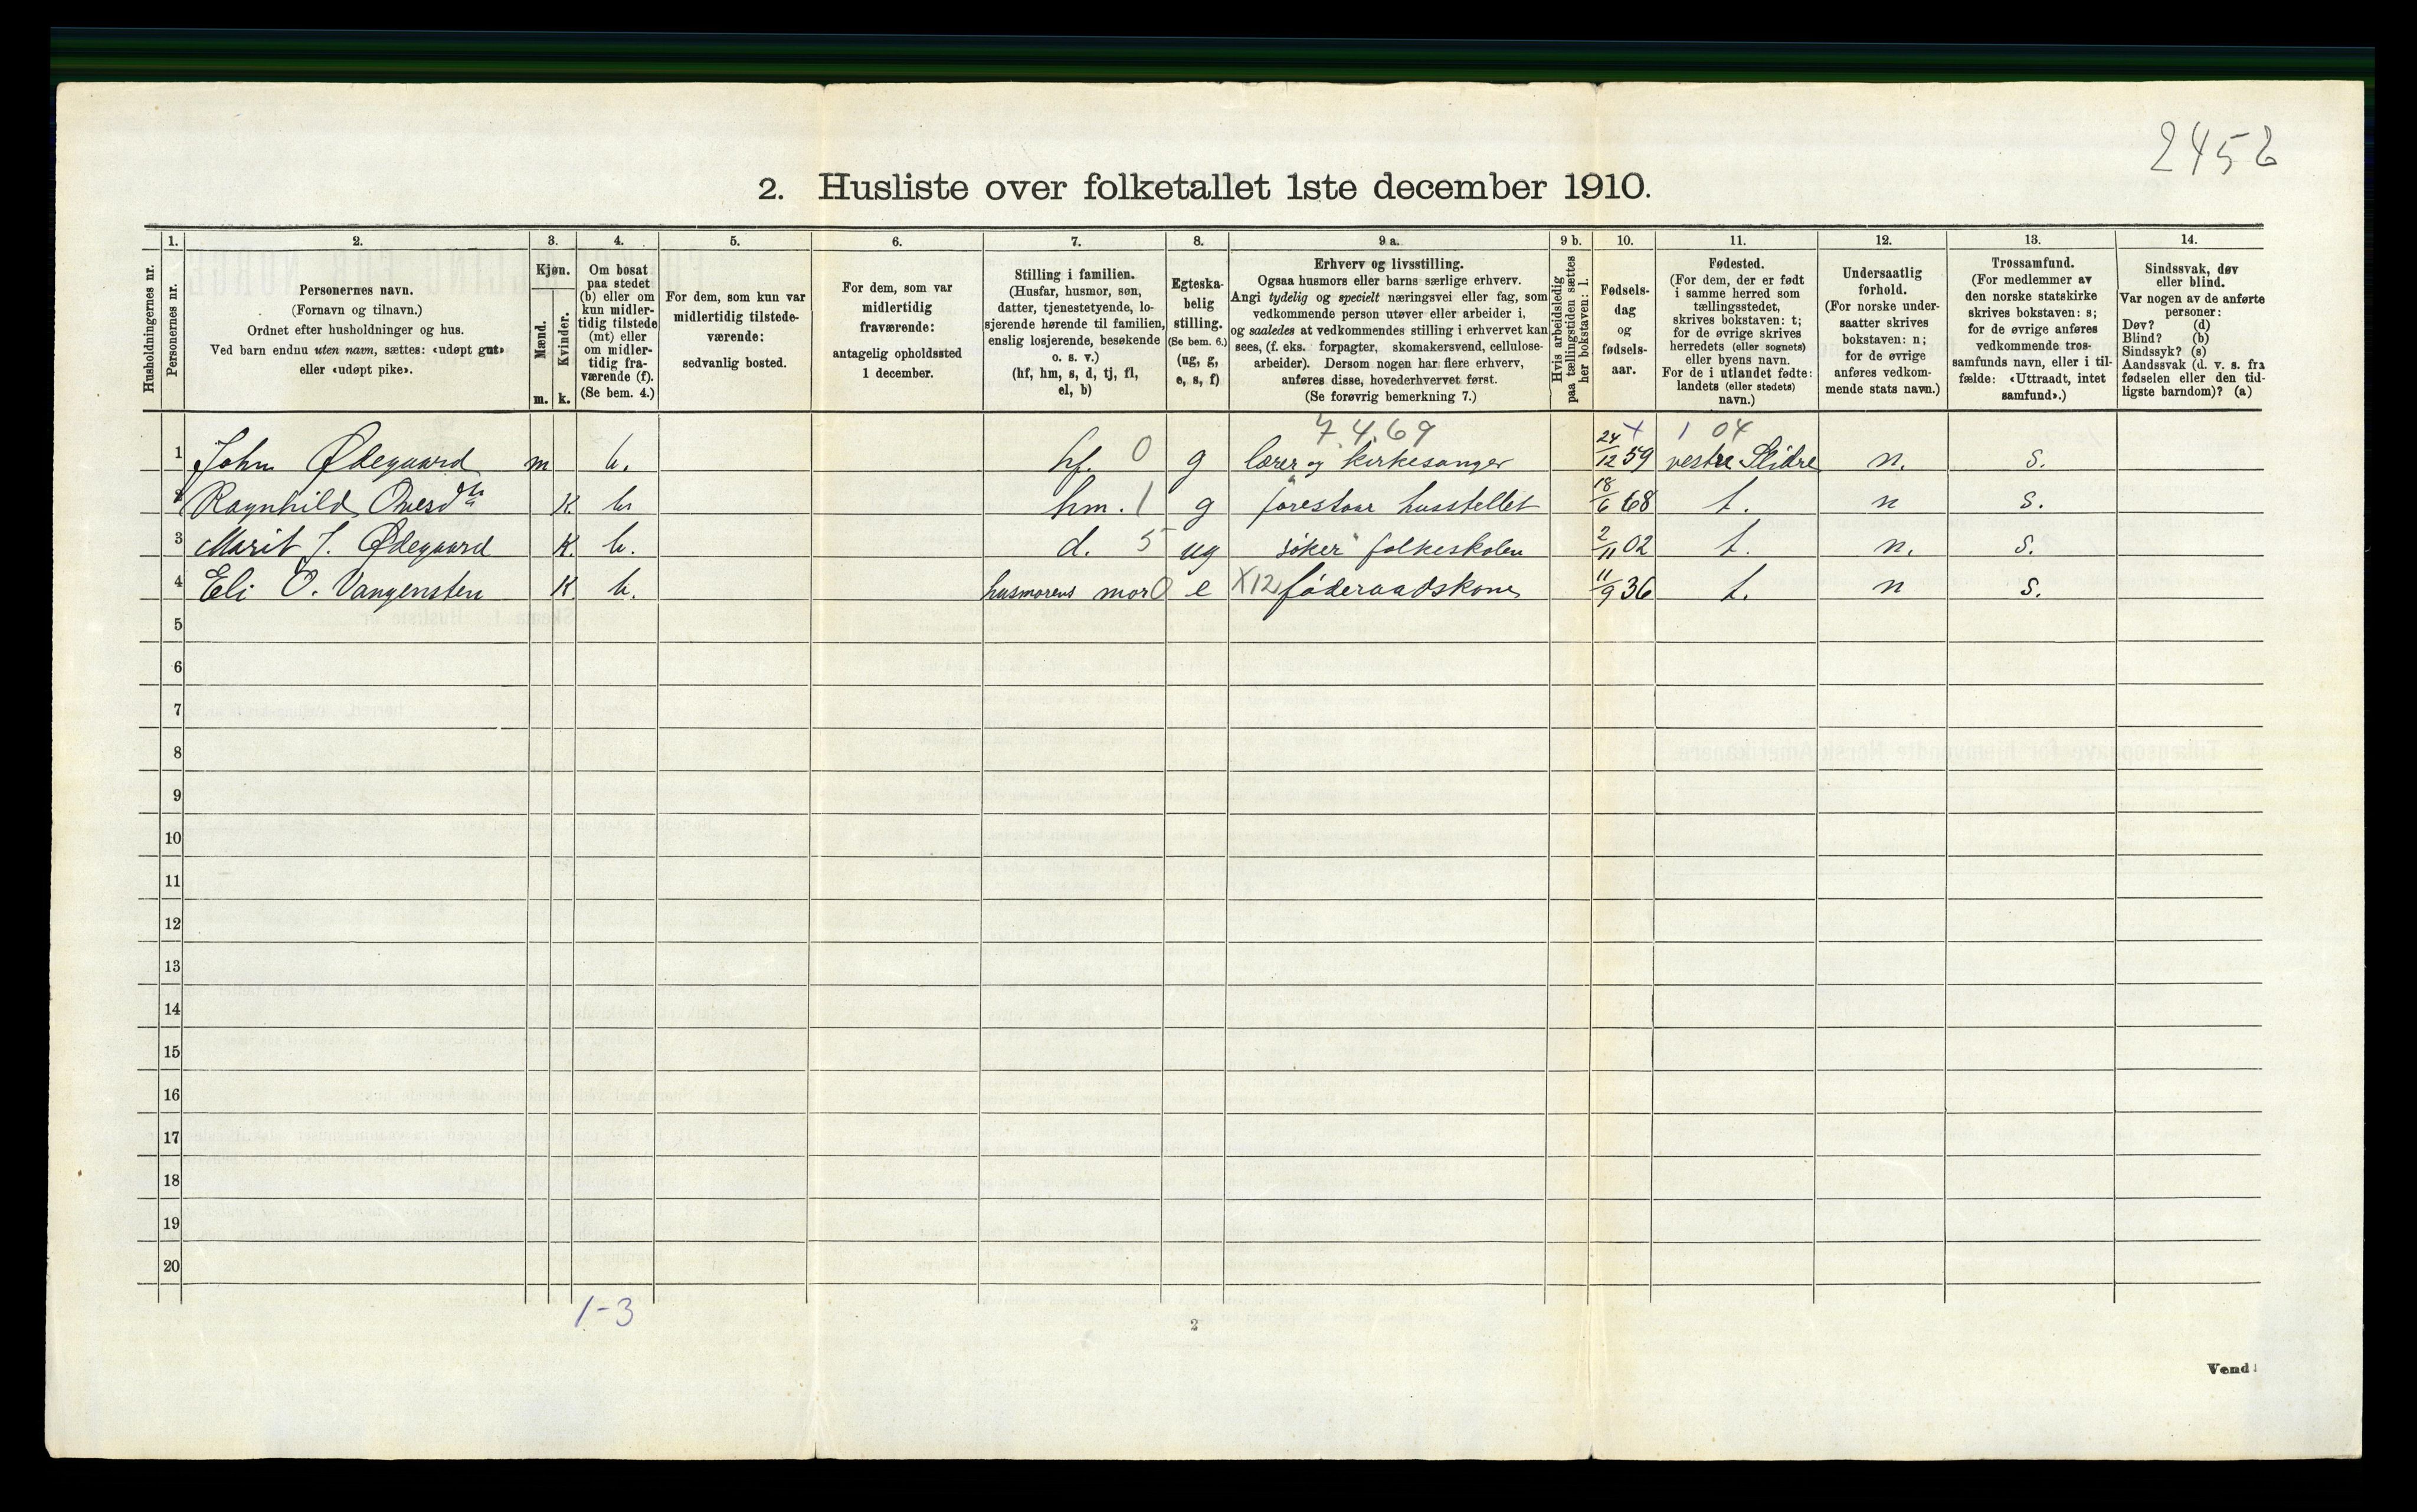 2452
2. Husliste over folketallet 1ste december 1910.
Husholdningernes nr.
1.
Personernes nr.
2.
Personernes navn.
(Fornavn og tilnavn.)
Ordnet efter husholdninger og hus.
Ved barn endnu uten navn, sættes: «udøpt gut»
eller «udøpt pike».
3.
Kjøn.
Mænd.
Kvinder.
m. k.
4.
Om bosat
paa stedet
(b) eller om
kun midler-
tidig tilstede
(mt) eller
om midler-
tidig fra-
værende (f).
(Se bem. 4.)
5.
For dem, som kun var
midlertidig tilstede-
værende:
sedvanlig bosted.
6.
For dem, som var
midlertidig
fraværende:
antagelig opholdssted
1 december.
7.
Stilling i familien.
(Husfar, husmor, søn,
datter, tjenestetyende, lo-
sjerende hørende til familien,
enslig losjerende, besøkende
o. s. v.)
(hf, hm, s, d, tj, fl,
el, b)
8.
Egteska-
belig
stilling.
(Se bem. 6.)
(ug, g,
e, s, f)
9 a.
Erhverv og livsstilling.
Ogsaa husmors eller barns særlige erhverv.
Angi tydelig og specielt næringsvei eller fag, som
vedkommende person utøver eller arbeider i,
og saaledes at vedkommendes stilling i erhvervet kan
sees, (f. eks. forpagter, skomakersvend, cellulose-
arbeider). Dersom nogen har flere erhverv,
anføres disse, hovederhvervet først.
(Se forøvrig bemerkning 7.)
9 b.
Hvis arbeidsledig
paa tællingstiden sættes
her bokstaven: l.
10.
Fødsels-
dag
og
fødsels-
aar.
11.
Fødested.
(For dem, der er født
i samme herred som
tællingsstedet,
skrives bokstaven: t;
for de øvrige skrives
herredets (eller sognets)
eller byens navn.
For de i utlandet fødte:
landets (eller stedets)
navn.)
12.
Undersaatlig
forhold.
(For norske under-
saatter skrives
bokstaven: n;
for de øvrige
anføres vedkom-
mende stats navn.)
13.
Trossamfund.
(For medlemmer av
den norske statskirke
skrives bokstaven: s;
for de øvrige anføres
vedkommende tros-
samfunds navn, eller i til-
fælde: «Uttraadt, intet
samfund».)
14.
Sindssvak, døv
eller blind.
Var nogen av de anførte
personer:
Døv? (d)
Blind? (b)
Sindssyk? (s)
Aandssvak (d. v. s. fra
fødselen eller den tid-
ligste barndom)? (a)
7.4.69 x 1 04
1 John Ødegaard m b. hf. 0 g lærer og kirkesanger 24/12 59 vestre Slidre n. s.
2 Ragnhild Ovesdtr K b hm. 1 g forestaar husstellet 18/6 68 t. n s.
3 Marit J. Ødegaard K. b. d. 5 ug søker folkeskolen 2/11 02 t. n. s.
4 Eli O. Vangensten K b. husmorens mor 0 e X12 føderaadskone 11/9 36 t. n s.
5
6
7
8
9
10
11
12
13
14
15
16
17
18
19
20
1-3
2
Vend!